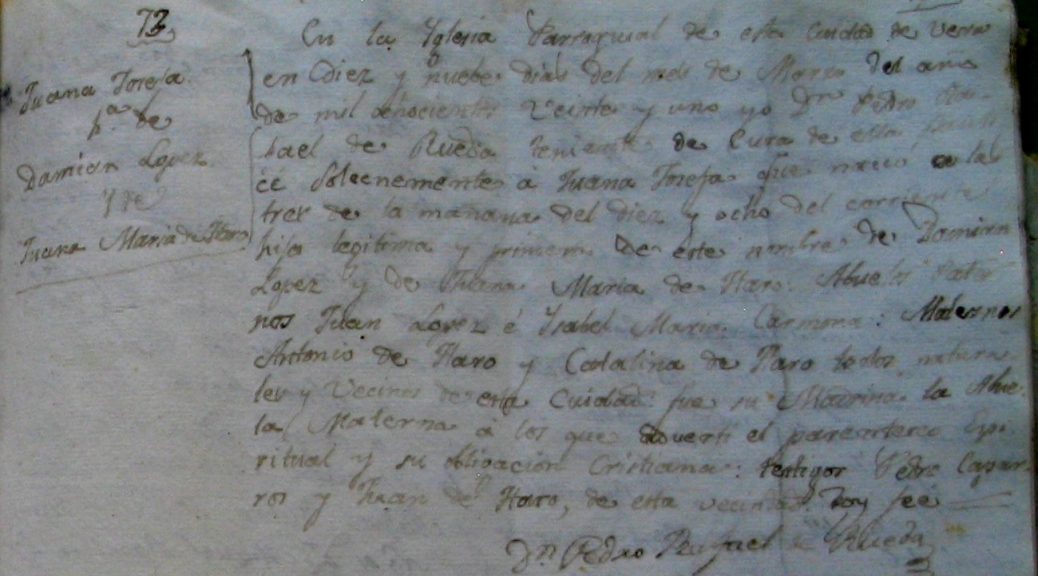 73
Juana Josefa
h.ª de
Damian Lopez
Y de
Juana Maria de Haro
En la Yglesia Parroquial de esta Cuidad de Vera
en diez y nuebe dias del mes de Marzo del año
de mil ochocientos Veinte y uno yo Dn Pedro Ra-
fael de Rueda teniente de Cura de esta
cé Solecnemente á Juana Josefa que nacio a las
tres de la mañana del diez y ocho del corriente
hija legitima y primera de este nombre de Damian
Lopez y de Juana Maria de Haro. Abuelos Pater
nos Juan Lopez é Ysabel Maria Carmona: Maternos
Antonio de Haro y Catalina de Haro todos natura
les y Vecinos de esta Cuidad fue su Madrina la Abue-
la Materna á los que adverti el parentesco Espi
ritual y su obligacion Cristiana: testigos Pedro Capar-
ros y Juan de Haro, de esta vecindad doy fee
Dn. Pedro Rafael de Rueda